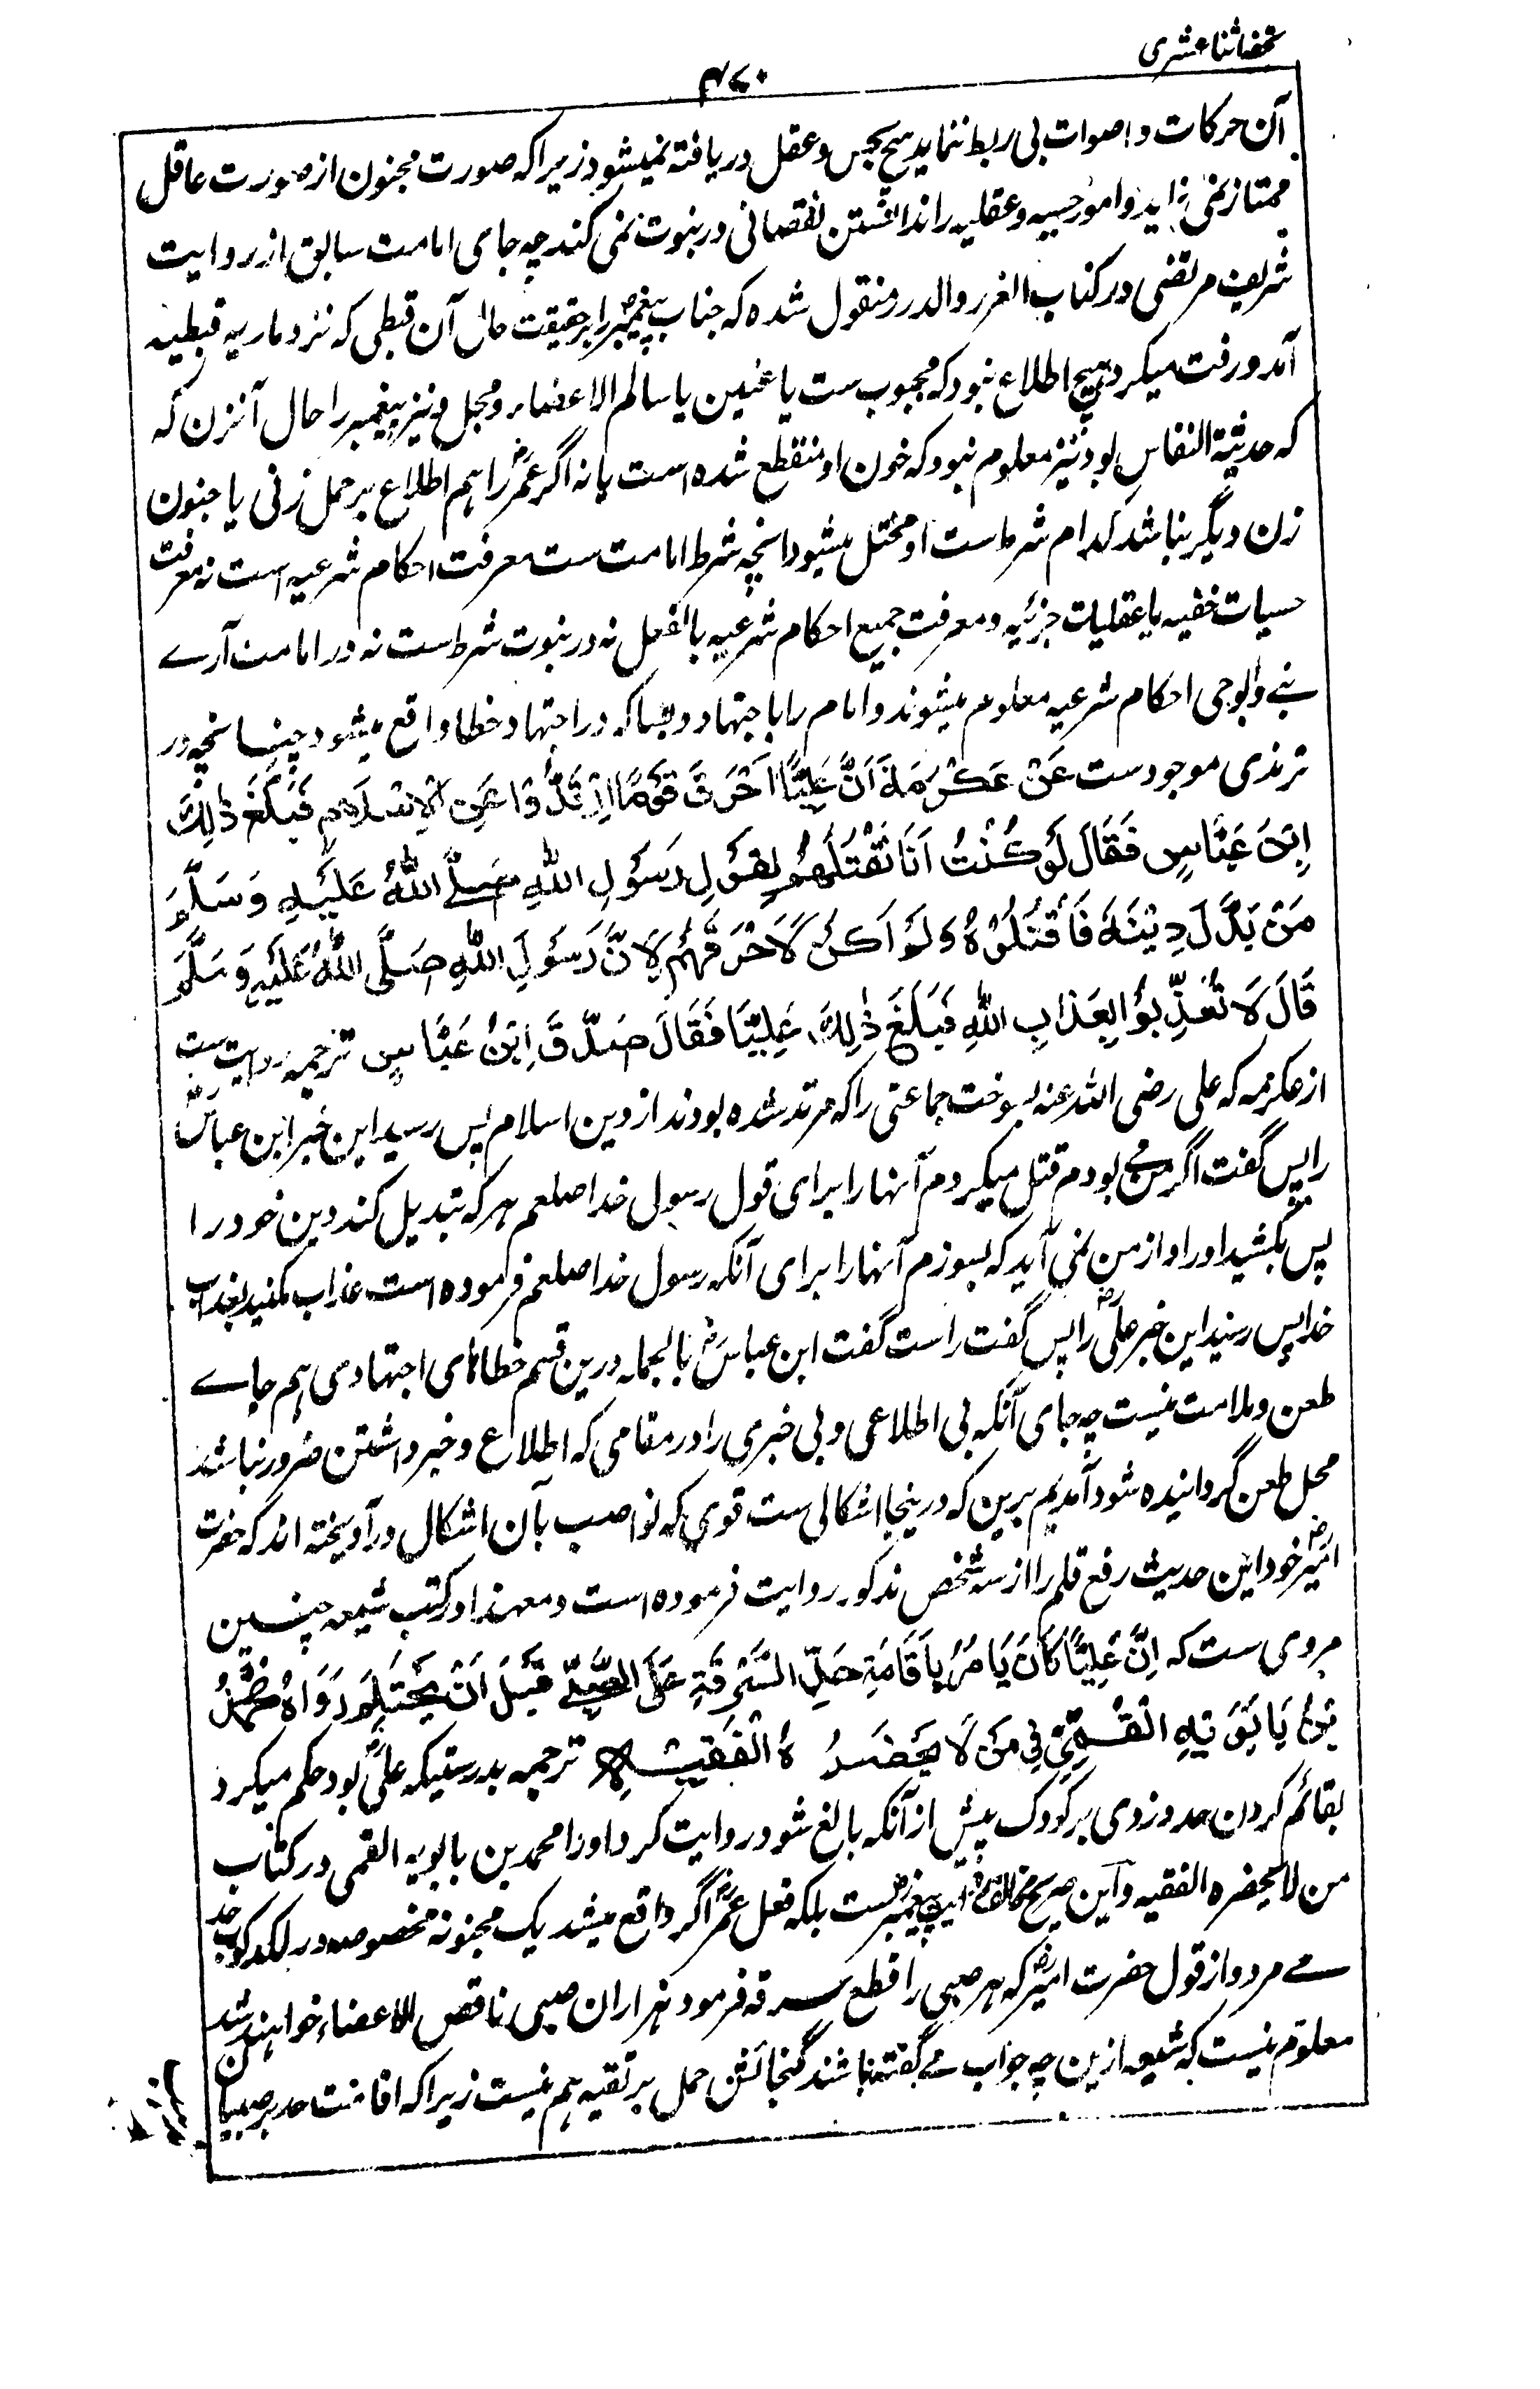 تحفه اثنا عشری
۴۷۰
آن حرکات و اصوات بی ربط ننماید هیچ بحس و عقل دریافته نمیشود زیرا که صورت مجنون از صورت عاقل
ممتاز نمی زاید و امور حسیه و عقلیه را ندانستن نقصانی در نبوت نمی کند چه جای امامت سابق از روایت
شریف مرتضی در کتاب الغرر والدرر منقول شده که جناب پیغمبر را بر حقیقت حال آن قبطی که نزد ماریه قبطیه
آمد و رفت میکرد هیچ اطلاع نبود که مجبوب ست یا عنین یا سالم الاعضاء و فحل و نیز پیغمبر را حال آنزن که
که حدیثة النفاس بود نیز معلوم نبود که خون او منقطع شده است یا نه اگر عمر رض را هم اطلاع بر حمل زنی یا جنون
زن دیگر نباشد کدام شرط ست او مختل میشود آنچه شرط امامت ست معرفت احکام شرعیه است نه معرفت
حسیات خفیه یا عقلیات جزئیه و معرفت جمیع احکام شرعیه بالفعل نه در نبوت شرط ست نه در امامت آرے
نبے را بوحی احکام شرعیه معلوم میشوند و امام را باجتهاد و بسا که در اجتهاد خطا واقع میشود چنانچه در
ترمذی موجودست عَنْ عَكْرَمَةَ اَنَّ عَلِيًّا اَحْرَقَ قَوْمًا اِرْتَدُّوْا عَنِ الْاِسْلَامِ فَبَلَغَ ذٰلِكَ
اِبْنَ عَبَّاسٍ فَقَالَ لَوْ كُنْتُ اَنَا لَقْتَلْتُهُمْ لِقَوْلِ رَسُوْلِ اللّٰهِ صَلَّے اللّٰهُ عَلَيْهِ وَسَلَّمَ
مَنْ بَدَّلَ دِيْنَهٗ فَاقْتُلُوْهُ وَلَوْ اَكُنْ لَاَحْرَقَهُمْ لِاَنَّ رَسُوْلَ اللّٰهِ صَلَّى اللّٰهُ عَلَيْهِ وَسَلَّمَ
قَالَ لَا تُعَذِّبُوْا بِعَذَابِ اللّٰهِ فَبَلَغَ ذٰلِكَ عَلِيًّا فَقَالَ صَدَّقَ اِبْنُ عَبَّاسٍ ترجمه روایت ست
از عکرمه که علی رضی الله عنه بسوخت جماعتی را که مرتد شده بودند از دین اسلام پس رسید این خبر ابن عباس رض
را پس گفت اگر من مے بودم قتل میکردم آنها را برای قول رسول خدا صلعم هر که تبدیل کند دین خود را
پس بکشید او را و از من نمی آید که بسوزم آنها را برای آنکه رسول خدا صلعم فرموده است عذاب مکنید بعذاب
خدا پس رسید این خبر علی رض را پس گفت راست گفت ابن عباس رض بالجمله درین قسم خطاهای اجتهادی هم جاے
طعن و ملامت نیست چه جای آنکه بی اطلاعی و بی خبری را در مقامی که اطلاع و خبر داشتن ضرور نباشد
محل طعن گردانیده شود آمدیم برین که درینجا اشکالی ست قوی که نواصب بآن اشکال در آویخته اند که حضرت
امیر رض خود این حدیث رفع قلم را از سه شخص مذکور روایت فرموده است و معهذا در کتب شیعه چنین
مروی ست که اِنَّ عَلِيًّا كَانَ يَامُرُ بِاَقَامَةِ حَدِّ السَّرِقَةِ عَلَى الصَّبِيِّ قَبْلَ اَنْ يَحْتَلِمَ رَوَاهُ مُحَمَّدُ
بْنُ بَابَوَيْهِ الْقُمِّيُّ فِي مَنْ لَا يَحْضَرُهُ الْفَقِيْهِ ترجمه بدرستیکه علی رض بود حکم میکرد
بقائم کردن حد دزدی بر کودک پیش از آنکه بالغ شود روایت کرد او را محمد بن بابویه القمی در کتاب
من لا یحضره الفقیه و این صریح مخالف پیغمبر ست بلکه فعل عمر رض اگر واقع میشد یک مجنونه مخصوصه در لکدکوب حد
مے مرد و از قول حضرت امیر رض که هر صبی را قطع سرقه فرمود هزاران صبی ناقص الاعضاء خواهند شد
معلوم نیست که شیعه ازین چه جواب مے گفته باشند گنجائش حمل بر تقیه هم نیست زیرا که اقامت حد بر صبیان